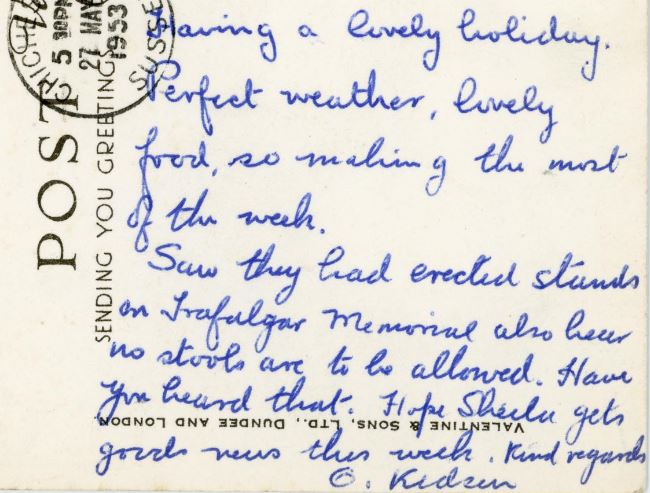 Having a lovely holiday.
Perfect weather, lovely
food, so making the most
of the week.
Saw they had erected stands
on Trafalgar Memorial also hear
no stools are to be allowed. Have
you heard that. Hope Sheila gets
goods news this week. Kind regards
O.
CHICHE
5 30PM
27 MAY
1953
SUSSE
POST
SENDING YOU GREETING
VALENTINE & SONS, LTD., DUNDEE AND LONDON